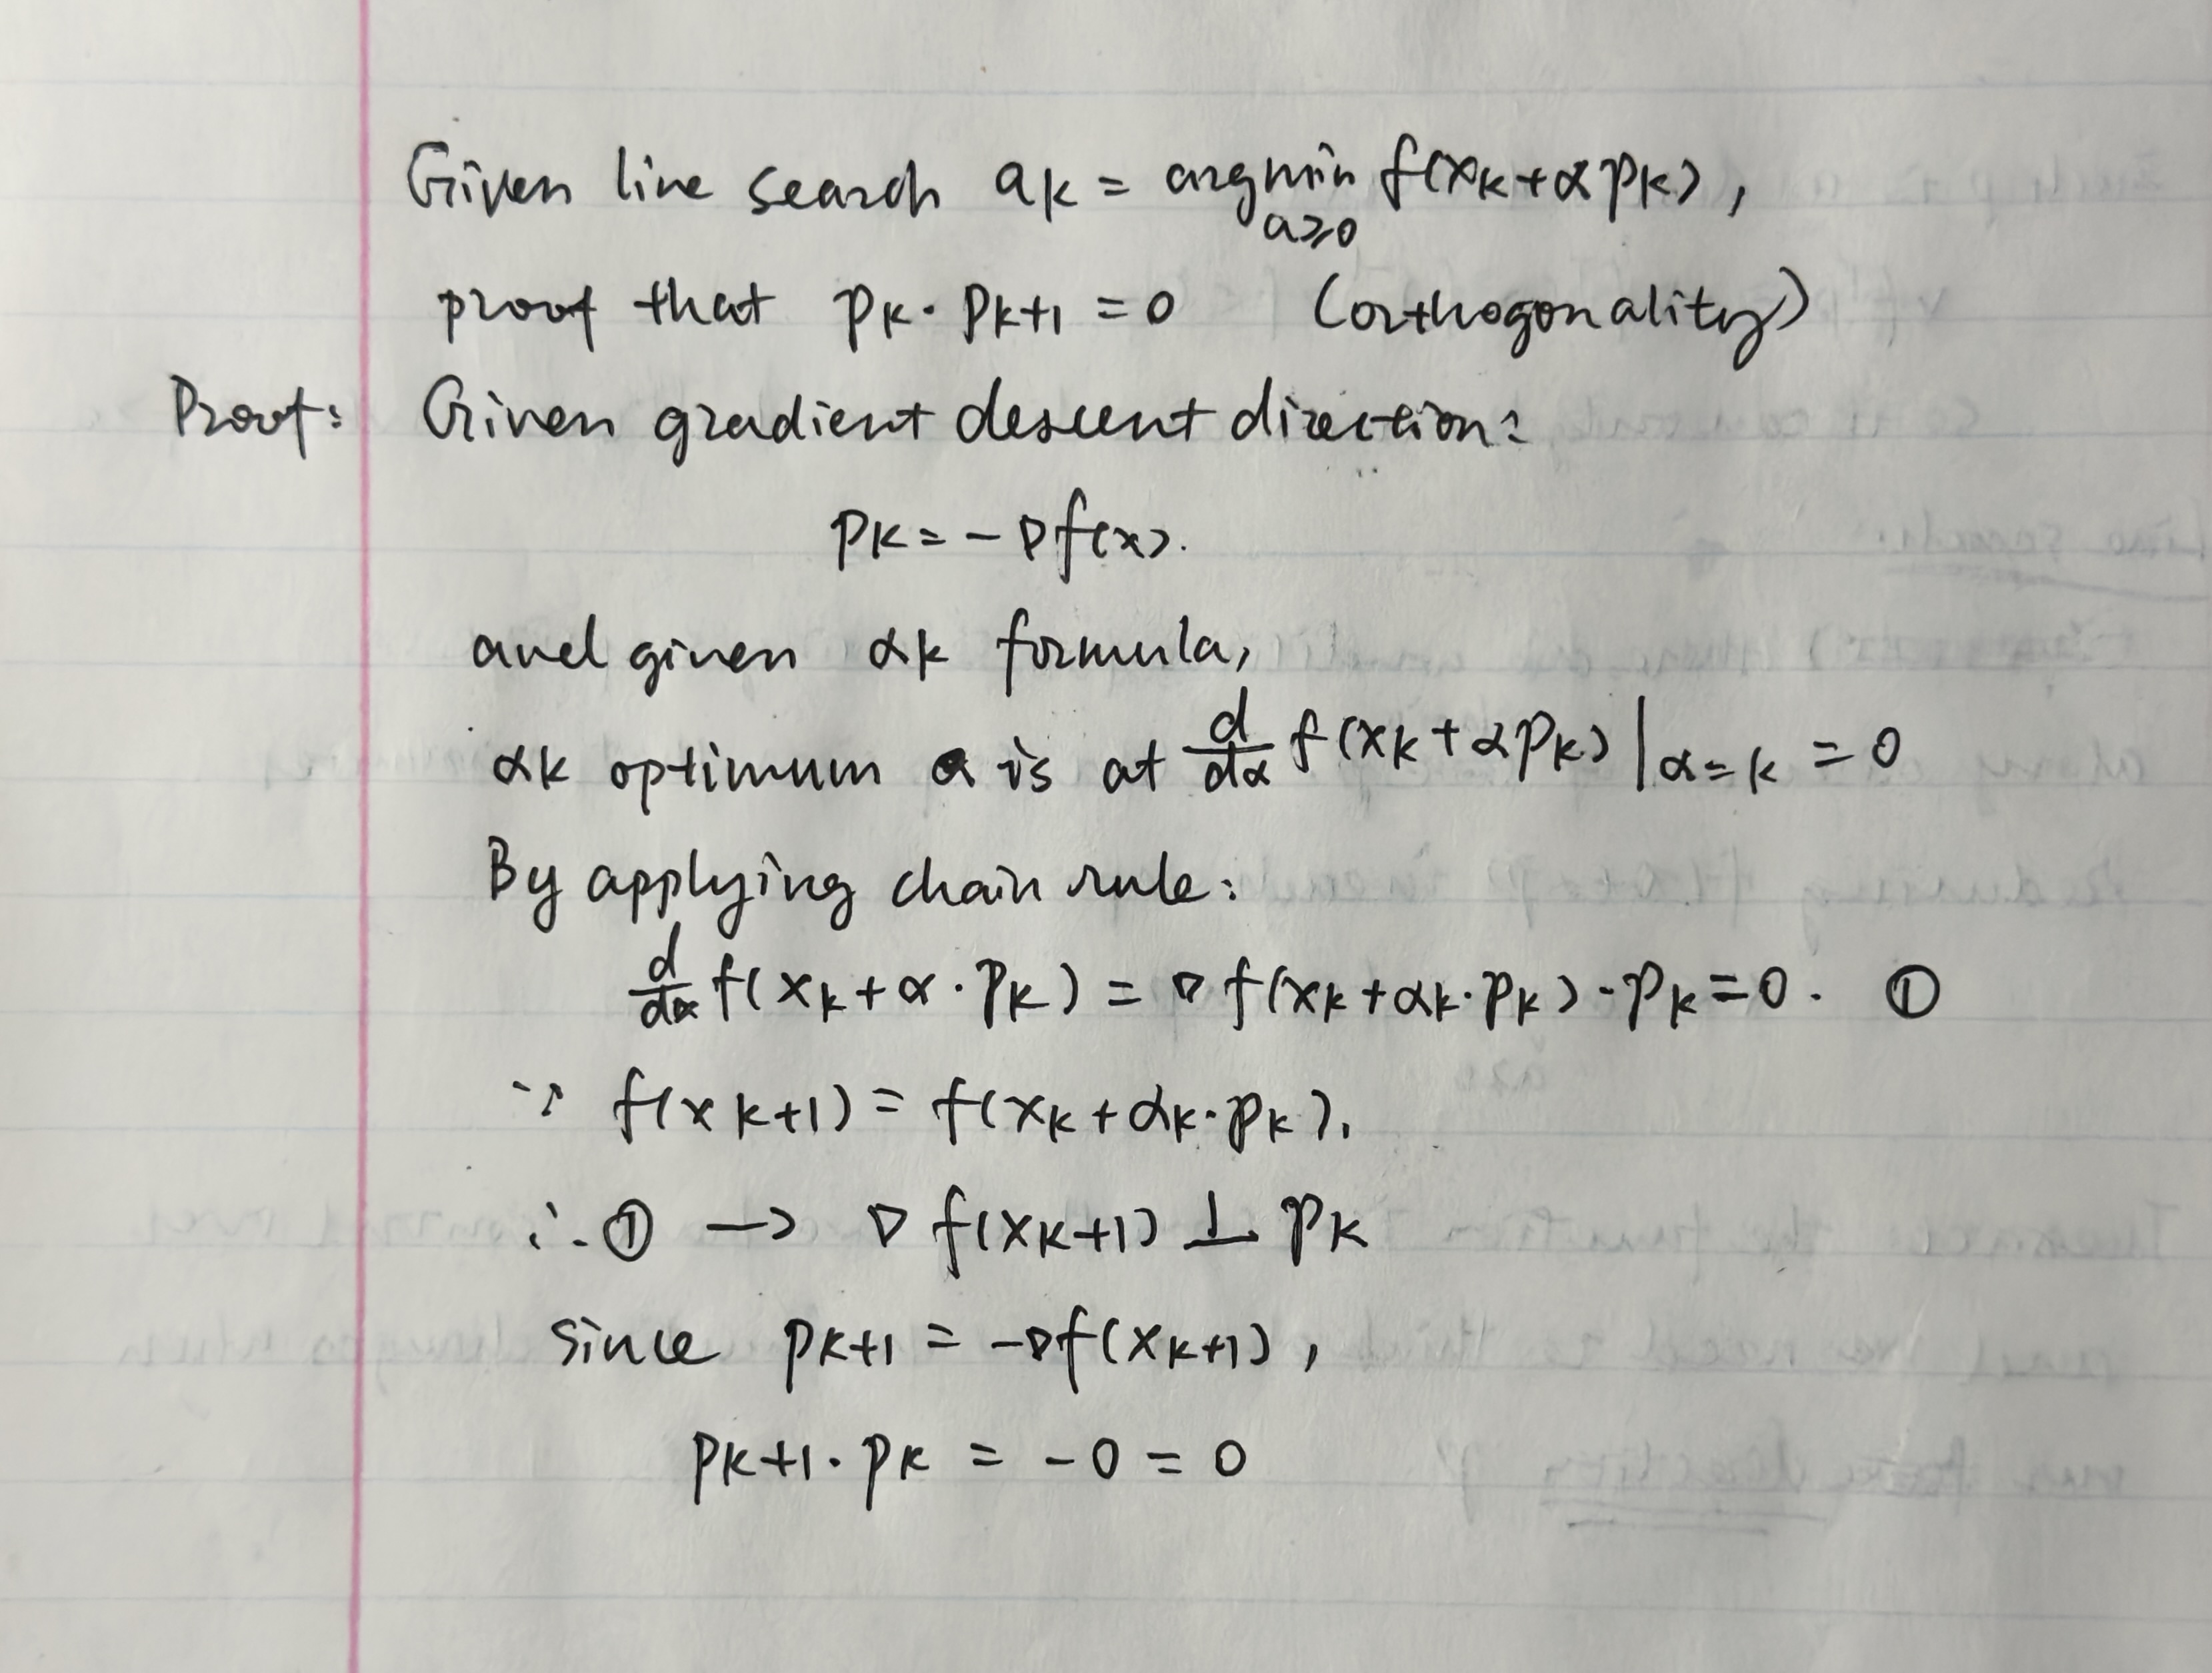 Given line search ak = argmin f(xk+αpk),
a≥0
proof that pk·pk+1 = 0 (orthogonality)
Proof: Given gradient descent direction:
pk = -∇f(x).
and given αk formula,
αk optimum is at d/dα f(xk+αpk)|α=k = 0
By applying chain rule:
d/dα f(xk+α·pk) = ∇f(xk+αk·pk)·pk=0. ①
∵ f(xk+1) = f(xk+αk·pk).
∴ ① → ∇f(xk+1) ⊥ pk
since pk+1 = -∇f(xk+1),
pk+1·pk = -0 = 0